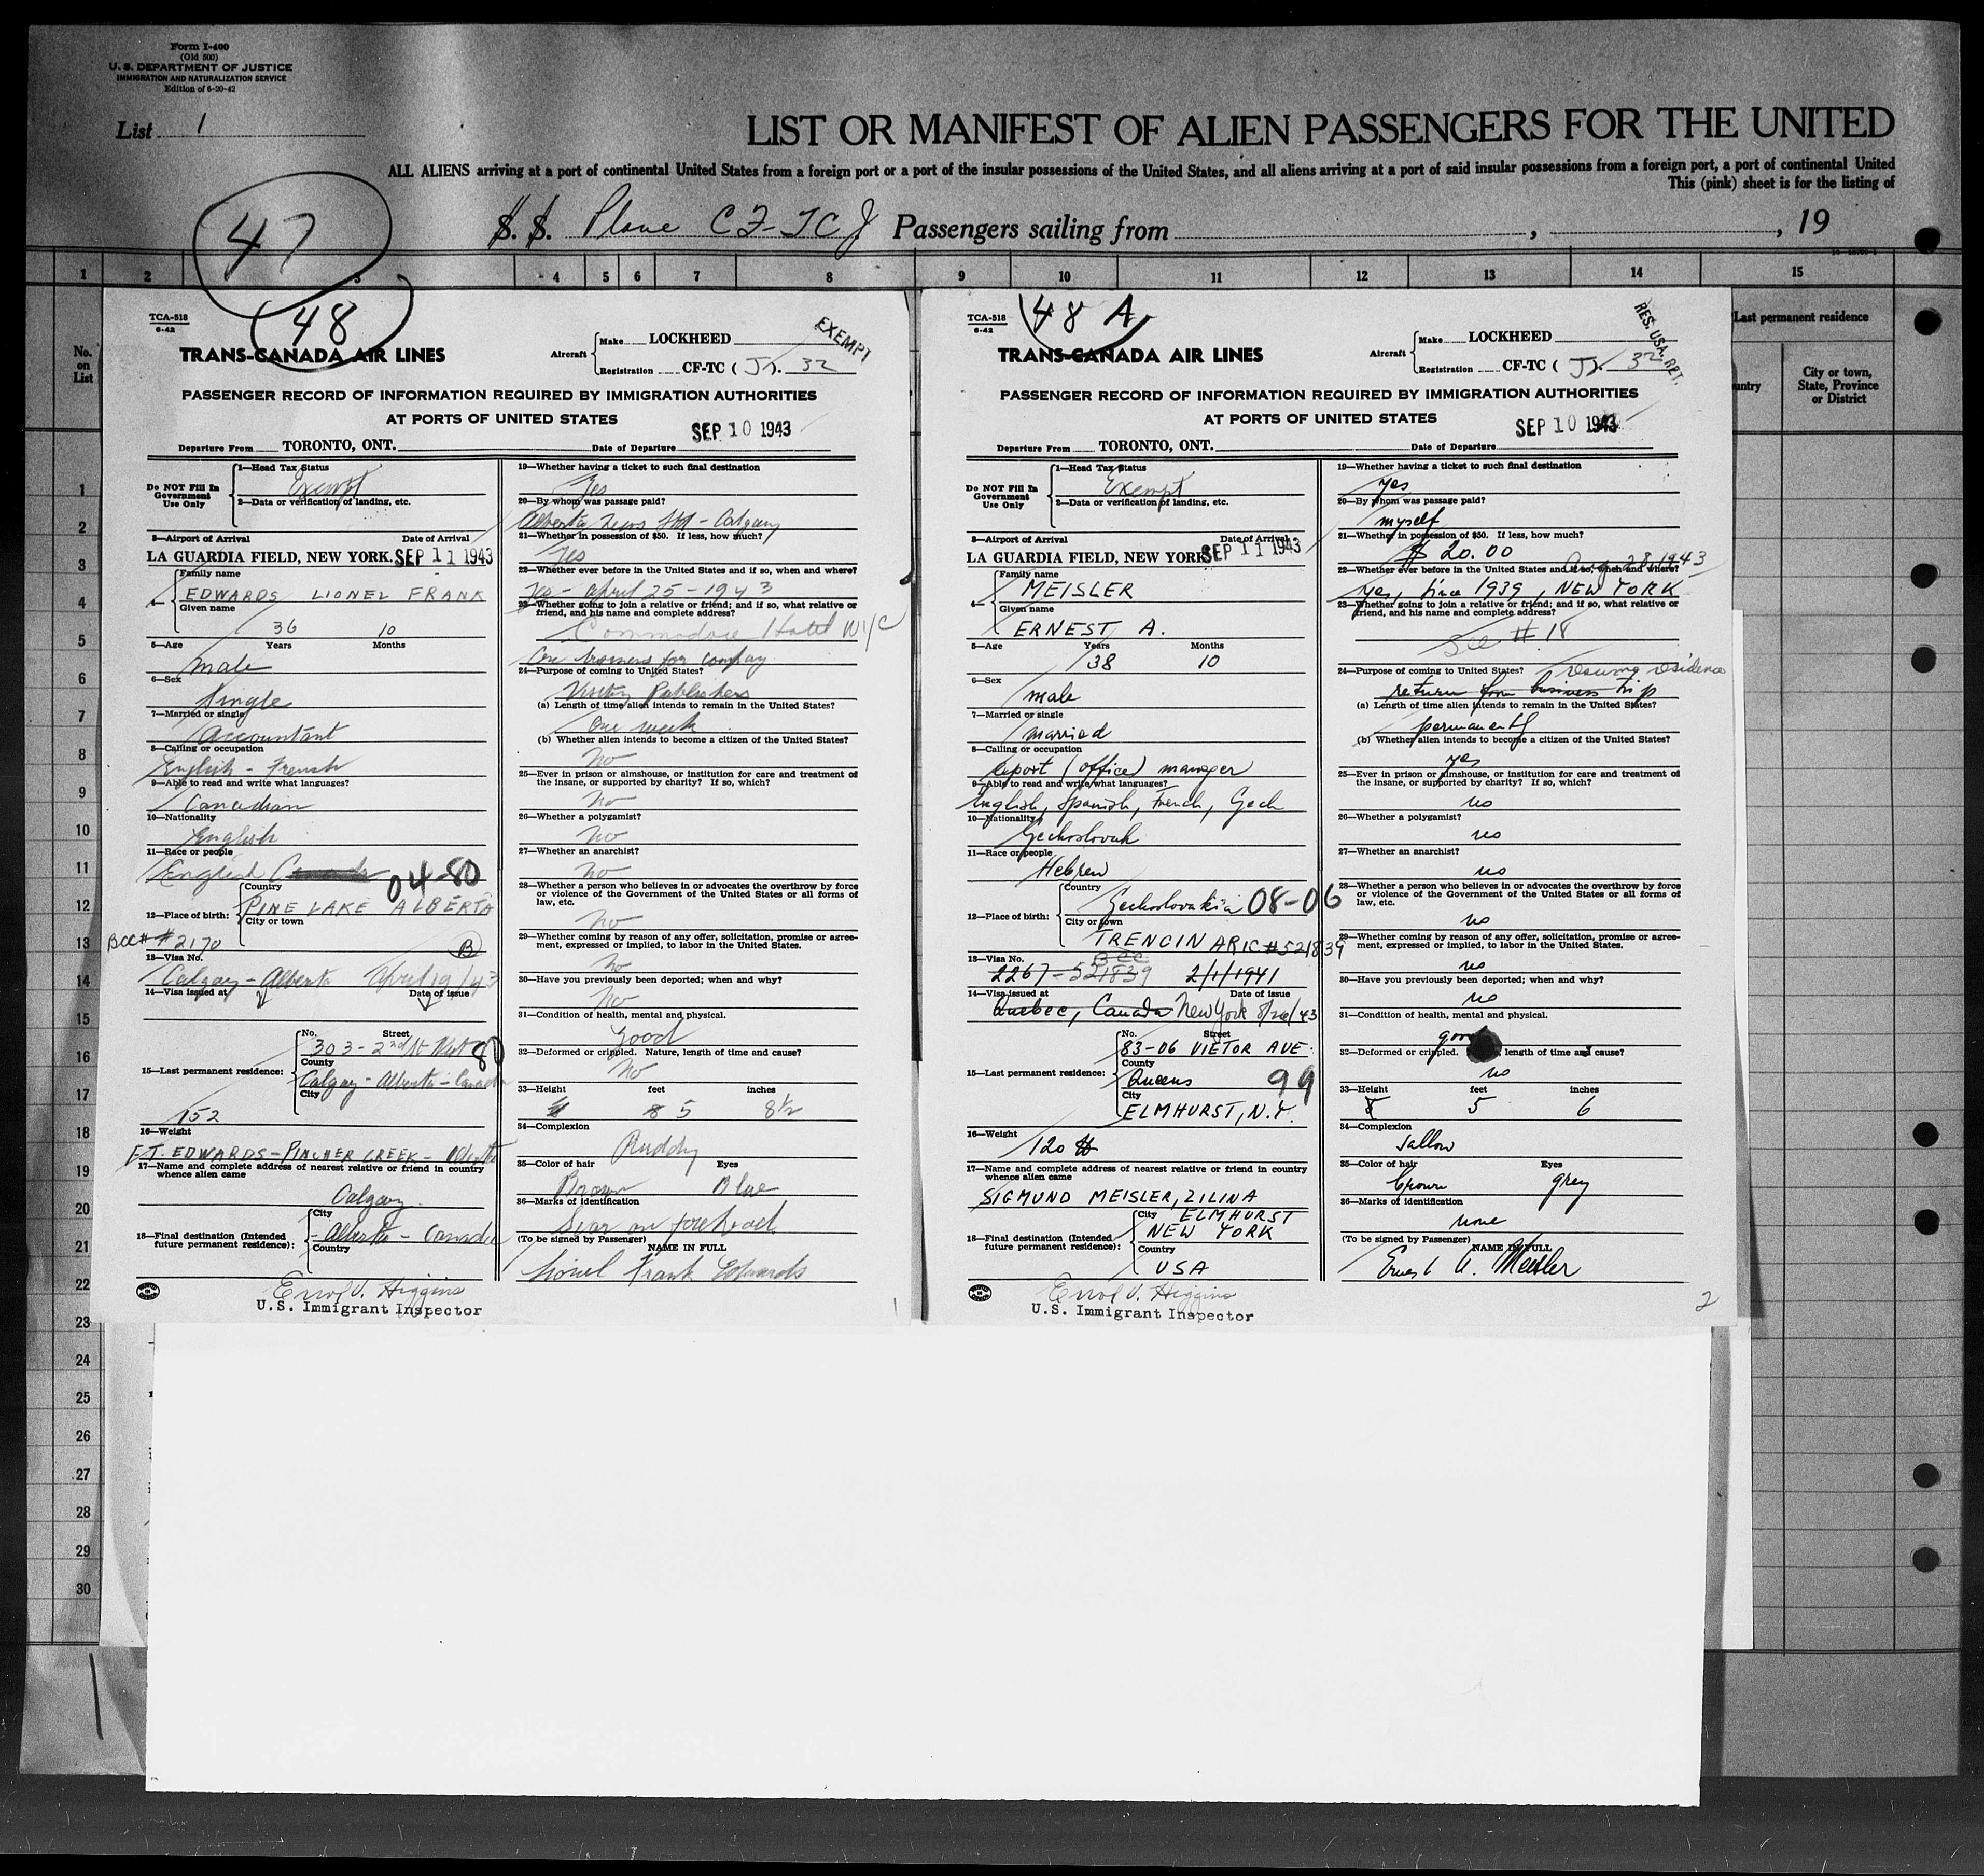 Form I-400
(Old 500)
U. S. DEPARTMENT OF JUSTICE
IMMIGRATION AND NATURALIZATION SERVICE
Edition of 6-20-42
List 1
LIST OR MANIFEST OF ALIEN PASSENGERS FOR THE UNITED
ALL ALIENS arriving at a port of continental United States from a foreign port or a port of the insular possessions of the United States, and all aliens arriving at a port of said insular possessions from a foreign port, a port of continental United
This (pink) sheet is for the listing of
47
S. S. Plane CF-TCJ Passengers sailing from , , 19
1 2 3 4 5 6 7 8 9 10 11 12 13 14 15
No. on List
Last permanent residence
City or town, State, Province or District
1
2
3
4
5
6
7
8
9
10
11
12
13
14
15
16
17
18
19
20
21
22
23
24
25
26
27
28
29
30
TCA-518
6-42
48
EXEMPT
TRANS-CANADA AIR LINES
Aircraft Make LOCKHEED
Registration CF-TC ( J ). 32
PASSENGER RECORD OF INFORMATION REQUIRED BY IMMIGRATION AUTHORITIES
AT PORTS OF UNITED STATES
SEP 10 1943
Departure From TORONTO, ONT. Date of Departure
Do NOT Fill In Government Use Only
1—Head Tax Status
Exempt
2—Data or verification of landing, etc.
3—Airport of Arrival Date of Arrival
LA GUARDIA FIELD, NEW YORK. SEP 11 1943
4—
Family name
EDWARDS LIONEL FRANK
Given name
36 10
5—Age Years Months
male
6—Sex
Single
7—Married or single
Accountant
8—Calling or occupation
English - French
9—Able to read and write what languages?
Canadian
10—Nationality
English
11—Race or people
English 04-80
Country
PINE LAKE ALBERTA
12—Place of birth:
City or town
BCC# #2170 B
13—Visa No.
Calgary - Alberta April 19/43
14—Visa issued at Date of issue
No. Street
303 - 2nd St West 80
County
15—Last permanent residence:
Calgary - Alberta - Canada
City
152
16—Weight
F.T. EDWARDS - PINCHER CREEK - Alberta
17—Name and complete address of nearest relative or friend in country whence alien came
Calgary
City
18—Final destination (Intended future permanent residence):
- Alberta - Canada
Country
Errol V. Higgins
U.S. Immigrant Inspector
19—Whether having a ticket to such final destination
Yes
20—By whom was passage paid?
Alberta News Ltd - Calgary
21—Whether in possession of $50. If less, how much?
Yes
22—Whether ever before in the United States and if so, when and where?
Yes - April 25 - 1943
23—Whether going to join a relative or friend; and if so, what relative or friend, and his name and complete address?
Commodore Hotel NYC
On business for company
24—Purpose of coming to United States?
Visiting Publishers
(a) Length of time alien intends to remain in the United States?
One week
(b) Whether alien intends to become a citizen of the United States?
No
25—Ever in prison or almshouse, or institution for care and treatment of the insane, or supported by charity? If so, which?
No
26—Whether a polygamist?
No
27—Whether an anarchist?
No
28—Whether a person who believes in or advocates the overthrow by force or violence of the Government of the United States or all forms of law, etc.
No
29—Whether coming by reason of any offer, solicitation, promise or agreement, expressed or implied, to labor in the United States.
No
30—Have you previously been deported; when and why?
No
31—Condition of health, mental and physical.
Good
32—Deformed or crippled. Nature, length of time and cause?
No
33—Height feet inches
5 8½
34—Complexion
Ruddy
35—Color of hair Eyes
Brown Blue
36—Marks of identification
Scar on forehead
(To be signed by Passenger) NAME IN FULL
Lionel Frank Edwards
1
TCA-518
6-42
48 A
RES. USA. RET.
TRANS-CANADA AIR LINES
Aircraft Make LOCKHEED
Registration CF-TC ( J ). 32
PASSENGER RECORD OF INFORMATION REQUIRED BY IMMIGRATION AUTHORITIES
AT PORTS OF UNITED STATES
SEP 10 1943
Departure From TORONTO, ONT. Date of Departure
Do NOT Fill In Government Use Only
1—Head Tax Status
Exempt
2—Data or verification of landing, etc.
3—Airport of Arrival Date of Arrival
LA GUARDIA FIELD, NEW YORK. SEP 11 1943
4—
Family name
MEISLER
Given name
ERNEST A.
5—Age Years Months
38 10
6—Sex
male
7—Married or single
married
8—Calling or occupation
export (office) manager
9—Able to read and write what languages?
English, Spanish, French, Czech
10—Nationality
Czechoslovak
11—Race or people
Hebrew
Country
Czechoslovakia 08-06
12—Place of birth:
City or town
TRENCIN ARIC #521839
13—Visa No. BCC
2267-521839 2/1/1941
14—Visa issued at Date of issue
Quebec, Canada New York 8/26/43
No. Street
83-06 VIETOR AVE.
County
15—Last permanent residence:
Queens 99
City
ELMHURST, N.Y.
16—Weight
120 #
17—Name and complete address of nearest relative or friend in country whence alien came
SIGMUND MEISLER, ZILINA
City ELMHURST
NEW YORK
18—Final destination (Intended future permanent residence):
Country
USA
Errol V. Higgins
U.S. Immigrant Inspector
19—Whether having a ticket to such final destination
yes
20—By whom was passage paid?
myself
21—Whether in possession of $50. If less, how much?
$ 20.00 Aug 28 1943
22—Whether ever before in the United States and if so, when and where?
yes, since 1939, NEW YORK
23—Whether going to join a relative or friend; and if so, what relative or friend, and his name and complete address?
See # 18
24—Purpose of coming to United States? resuming residence
return from business trip
(a) Length of time alien intends to remain in the United States?
permanently
(b) Whether alien intends to become a citizen of the United States?
yes
25—Ever in prison or almshouse, or institution for care and treatment of the insane, or supported by charity? If so, which?
no
26—Whether a polygamist?
no
27—Whether an anarchist?
no
28—Whether a person who believes in or advocates the overthrow by force or violence of the Government of the United States or all forms of law, etc.
no
29—Whether coming by reason of any offer, solicitation, promise or agreement, expressed or implied, to labor in the United States.
no
30—Have you previously been deported; when and why?
no
31—Condition of health, mental and physical.
good
32—Deformed or crippled. length of time and cause?
no
33—Height feet inches
5 6
34—Complexion
sallow
35—Color of hair Eyes
brown grey
36—Marks of identification
none
(To be signed by Passenger) NAME IN FULL
Ernest A. Meisler
2